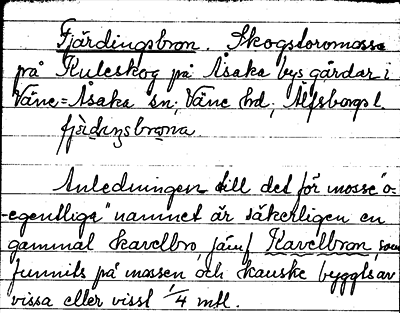 Fjärdingsbron. Skogstoromosse
på Ruleskog på Åsaka bys gärdar i
Väne=Åsaka sn; Väne hd; Älfsborgs l.
fjädiŋsbrona
Anledningen till det för mosse "o-
-egentliga" namnet är säkerligen en
gammal kavelbro, jämf Kavelbron, som
funnits på mossen och kanske byggts av
vissa eller visst 1/4 mtl.